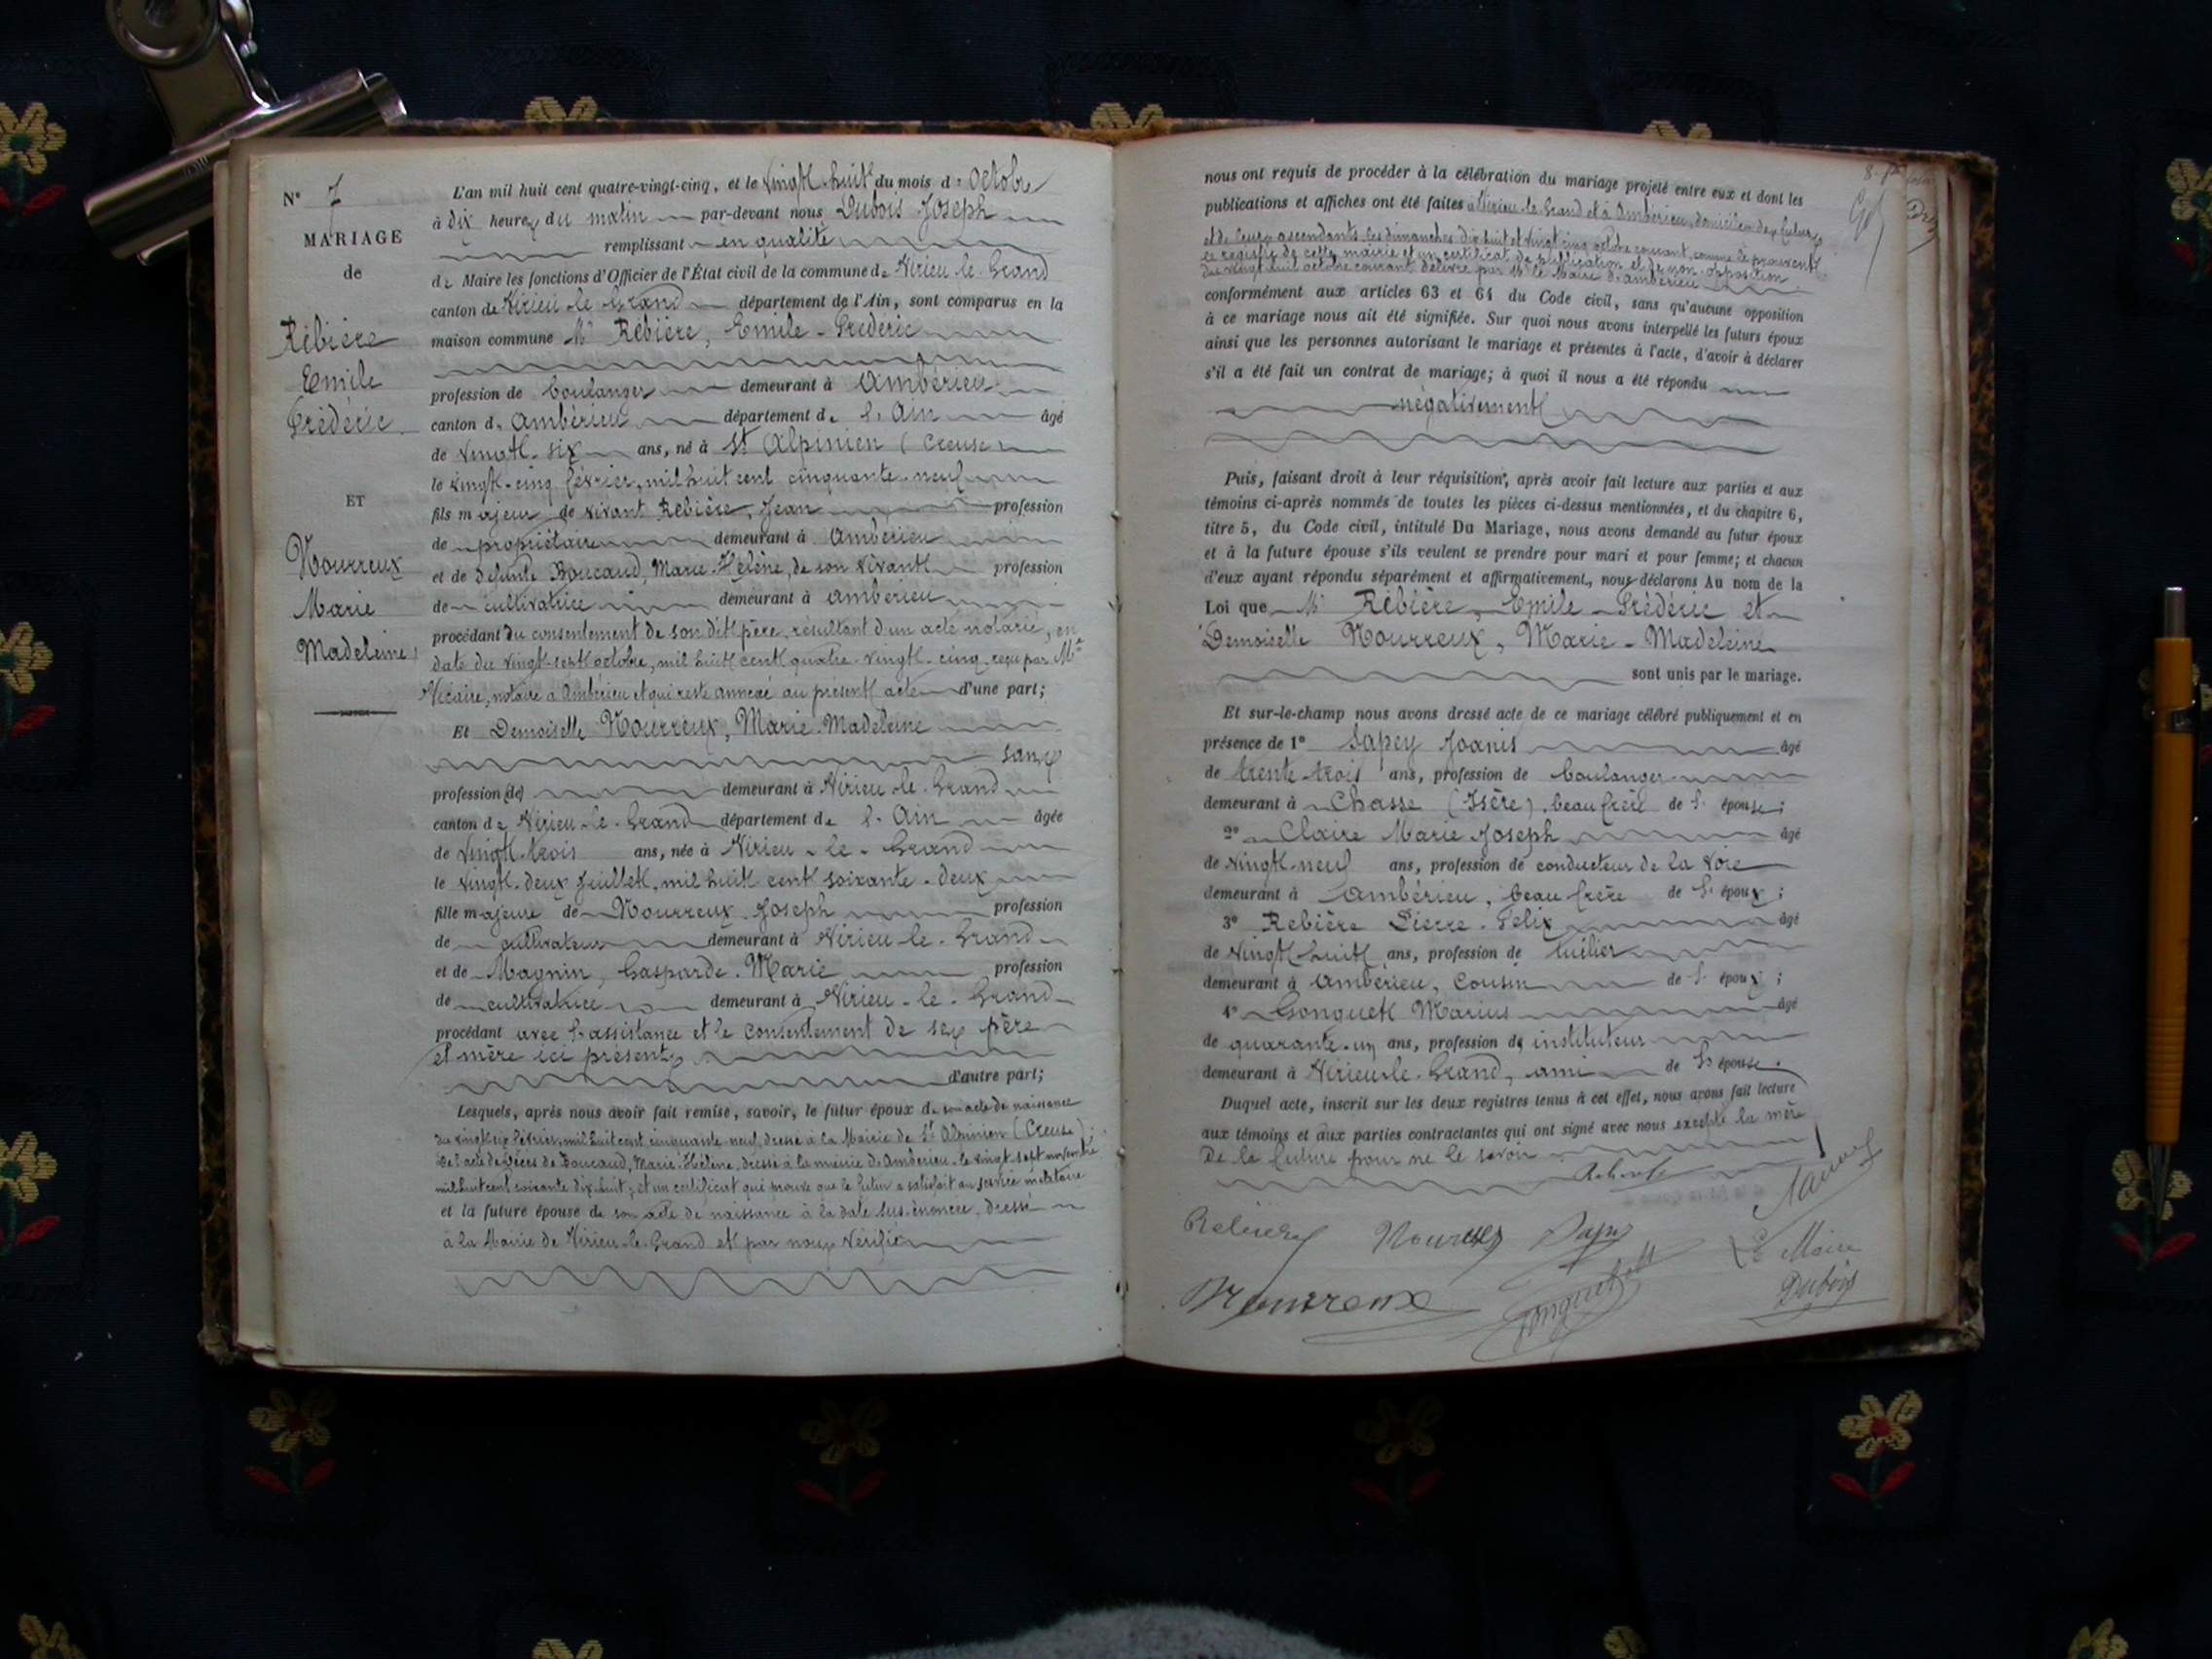 N° 7
MARIAGE
de
Rébière
Emile
Frédéric
ET
Nourreux
Marie
Madeleine
L'an mil huit cent quatre-vingt-cinq, et le vingt-huit du mois d'octobre
à dix heures du matin par-devant nous Dubois Joseph
remplissant en qualité
de Maire les fonctions d'Officier de l'État civil de la commune de Virieu-le-Grand
canton de Virieu-le-Grand département de l'Ain, sont comparus en la
maison commune Mr Rébière, Emile-Frédéric
profession de boulanger demeurant à Ambérieu
canton d'Ambérieu département de l'Ain âgé
de vingt-six ans, né à St Alpinien (Creuse
le vingt-cinq février, mil huit cent cinquante-neuf
fils majeur de vivant Rebière, Jean profession
de propriétaire demeurant à Ambérieu
et de défunte Boucaud, Marie-Hélène, de son vivant profession
de cultivatrice demeurant à Ambérieu
procédant du consentement de son dit père, résultant d'un acte notarié, en
date du vingt-sept octobre, mil huit cent quatre-vingt-cinq reçu par Me
Vicaire, notaire à Ambérieu et qui reste annexé au présent acte d'une part;
Et Demoiselle Nourreux, Marie-Madeleine
sans
profession (de) demeurant à Virieu-le-Grand
canton de Virieu-le-Grand département de l'Ain âgée
de vingt-trois ans, née à Virieu-le-Grand
le vingt-deux Juillet, mil huit cent soixante-deux
fille majeure de Nourreux Joseph profession
de cultivateur demeurant à Virieu-le-Grand
et de Magnin, Gasparde-Marie profession
de cultivatrice demeurant à Virieu-le-Grand
procédant avec l'assistance et le consentement de ses père
et mère ici présents
d'autre part;
Lesquels, après nous avoir fait remise, savoir, le futur époux de son acte de naissance
du vingt-six février, mil huit cent cinquante-neuf, dressé à la Mairie de St Alpinien (Creuse);
de l'acte de décès de Boucaud, Marie-Hélène, dressé à la mairie d'Ambérieu le vingt-sept novembre
mil huit cent soixante dix-huit; et un certificat qui prouve que le futur a satisfait au service militaire
et la future épouse de son acte de naissance à la date sus-énoncée, dressé
à la Mairie de Virieu-le-Grand et par nous vérifié
nous ont requis de procéder à la célébration du mariage projeté entre eux et dont les
publications et affiches ont été faites à Virieu-le-Grand et à Ambérieu, domiciles des futurs
et de leurs ascendants les dimanches dix-huit et vingt-cinq octobre courant, comme le prouvent
le registre de cette mairie et un certificat de publication et de non-opposition
du vingt-huit octobre courant délivré par Mr le Maire d'Ambérieu
conformément aux articles 63 et 64 du Code civil, sans qu'aucune opposition
à ce mariage nous ait été signifiée. Sur quoi nous avons interpellé les futurs époux
ainsi que les personnes autorisant le mariage et présentes à l'acte, d'avoir à déclarer
s'il a été fait un contrat de mariage; à quoi il nous a été répondu
négativement
Puis, faisant droit à leur réquisition, après avoir fait lecture aux parties et aux
témoins ci-après nommés de toutes les pièces ci-dessus mentionnées, et du chapitre 6,
titre 5, du Code civil, intitulé Du Mariage, nous avons demandé au futur époux
et à la future épouse s'ils veulent se prendre pour mari et pour femme; et chacun
d'eux ayant répondu séparément et affirmativement, nous déclarons Au nom de la
Loi que Mr Rébière, Emile-Frédéric et
Demoiselle Nourreux, Marie-Madeleine
sont unis par le mariage.
Et sur-le-champ nous avons dressé acte de ce mariage célébré publiquement et en
présence de 1° Sapey Joanis âgé
de trente-trois ans, profession de boulanger
demeurant à Chasse (Isère), beau frère de l'épouse;
2° Claire Marie Joseph âgé
de vingt-neuf ans, profession de conducteur de la voie
demeurant à Ambérieu, beau frère de l'époux;
3° Rebière Pierre-Félix âgé
de vingt-huit ans, profession de tuilier
demeurant à Ambérieu, cousin de l'époux;
4° Gonguet Marius âgé
de quarante-un ans, profession d'instituteur
demeurant à Virieu-le-Grand, ami de l'épouse.
Duquel acte, inscrit sur les deux registres tenus à cet effet, nous avons fait lecture
aux témoins et aux parties contractantes qui ont signé avec nous excepté la mère
de la future pour ne le savoir
Rebière Nourreux Sapey Le Maire
Nourreux Gonguet Dubois